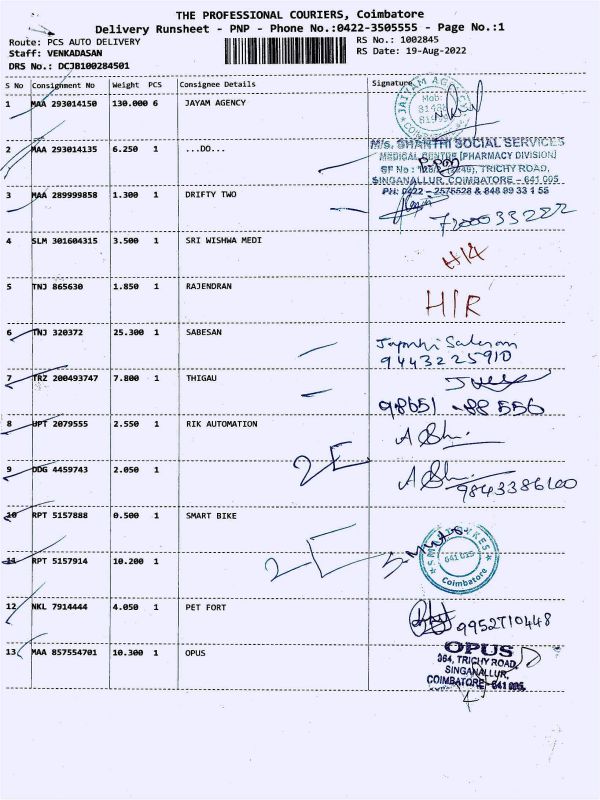 THE PROFESSIONAL COURIERS, Coimbatore
Delivery Runsheet - PNP - Phone No.:0422-3505555 - Page No.:1
Route: PCS AUTO DELIVERY RS No.: 1002845
Staff: VENKADASAN RS Date: 19-Aug-2022
DRS No.: DCJB100284501
S No Consignment No Weight PCS Consignee Details Signature
1 MAA 293014150 130.000 6 JAYAM AGENCY
JAIYAM AGENCY
Mob:
COIMBATORE
2 MAA 293014135 6.250 1 ...DO...
M/s. SHANTHI SOCIAL SERVICES
MEDICAL CENTRE (PHARMACY DIVISION)
TRICHY ROAD,
SINGANALLUR, COIMBATORE - 641 005
PH: 0422 - 2575528 & 848 99 33 1 55
3 MAA 289999858 1.300 1 DRIFTY TWO
7200033222
4 SLM 301604315 3.500 1 SRI WISHWA MEDI
5 TNJ 865630 1.850 1 RAJENDRAN
H/R
6 TNJ 320372 25.300 1 SABESAN
9443225910
7 TRZ 200493747 7.800 1 THIGAU
98651 - 88556
8 UPT 2079555 2.550 1 RIK AUTOMATION
2E
9 DDG 4459743 2.050 1
9843386100
10 RPT 5157888 0.500 1 SMART BIKE
2E
641 015
Coimbatore
11 RPT 5157914 10.200 1
12 NKL 7914444 4.050 1 PET FORT
9952710448
13 MAA 857554701 10.300 1 OPUS
OPUS
364, TRICHY ROAD,
SINGANALLUR,
COIMBATORE - 641 005.